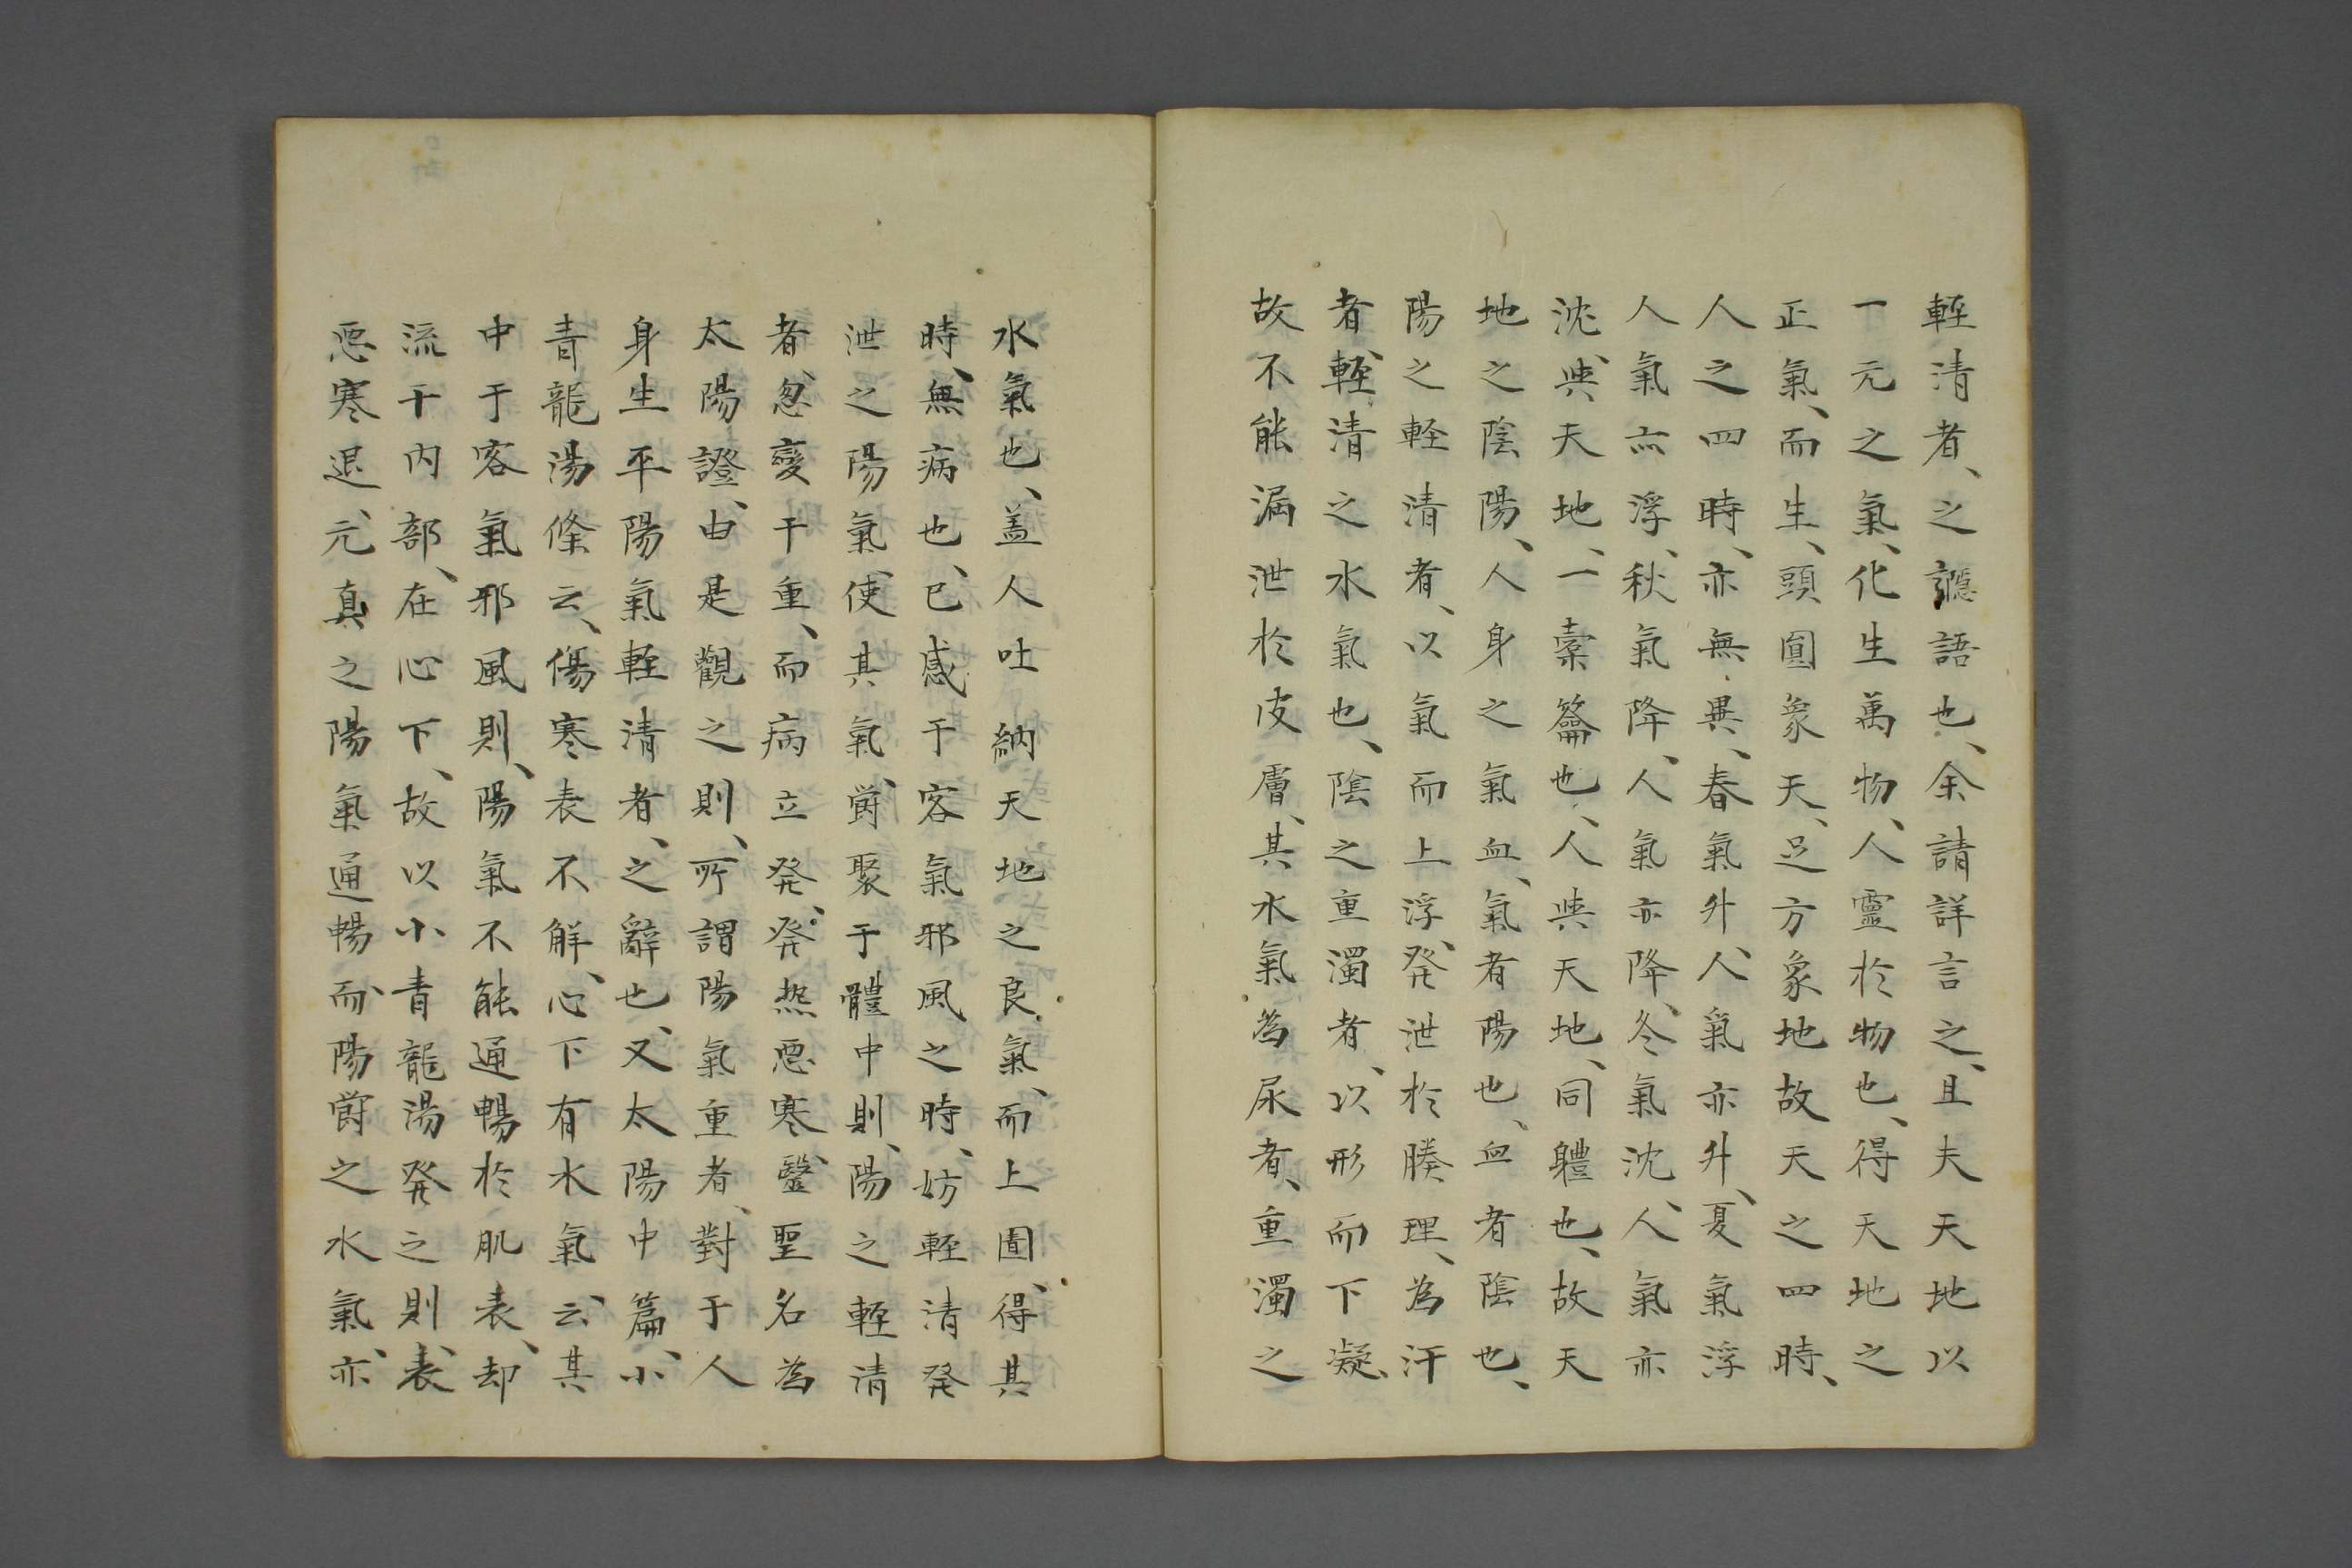 輕清者、之讔語也、余請詳言之、且夫天地以
一元之氣、化生萬物、人靈於物也、得天地之
正氣、而生、頭圓象天、足方象地故天之四時、
人之四時、亦無異、春氣升人、氣亦升、夏氣浮
人氣亦浮、秋氣降、人氣亦降、冬氣沈、人氣亦
沈、與天地、一橐籥也、人與天地、同軆也、故天
地之陰陽、人身之氣血、氣者陽也、血者陰也、
陽之軽清者、以氣而上浮、発泄於腠理、為汗
者、輕清之水氣也、陰之重濁者、以形而下凝、
故不能漏泄於皮膚、其水氣為尿者、重濁之
水氣也、盖人吐納天地之良氣、而上圊、得其
時、無病也、已感于客氣邪風之時、妨輕清発
泄之陽氣、使其氣、欝聚于體中則、陽之輕清
者、忽變于重、而病立発、発熱惡寒、毉聖名為
太陽證、由是觀之則、所謂陽氣重者、對于人
身生平陽氣輕清者、之辭也、又太陽中篇、小
青龍湯條云、傷寒表不解、心下有水氣云、其
中于客氣邪風則、陽氣不能通暢於肌表、却
流于内部、在心下、故以小青龍湯発之則、表
惡寒退、元真之陽氣通暢而、陽欝之水氣、亦